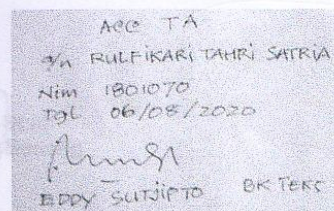 ACC TA
a/n RULFIKARI TAHRI SATRIA
Nim 1801070
Tgl 06/08/2020
EDDY SUTJIPTO